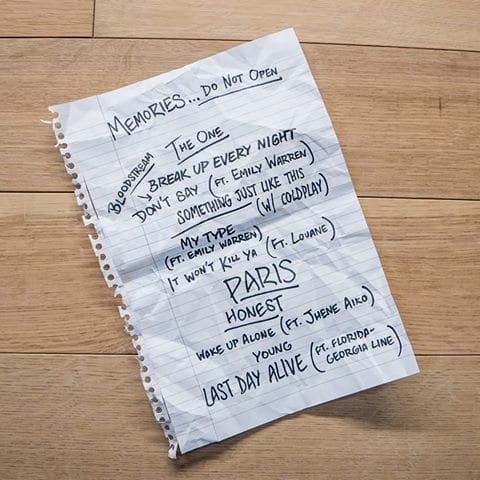 MEMORIES... DO NOT OPEN
THE ONE
BLOODSTREAM
BREAK UP EVERY NIGHT
DON'T SAY (FT. EMILY WARREN)
SOMETHING JUST LIKE THIS
(W/ COLDPLAY)
MY TYPE
(FT. EMILY WARREN)
IT WON'T KILL YA (FT. LOUANE)
PARIS
HONEST
WAKE UP ALONE (FT. JHENE AIKO)
YOUNG
LAST DAY ALIVE (FT. FLORIDA-
GEORGIA LINE)